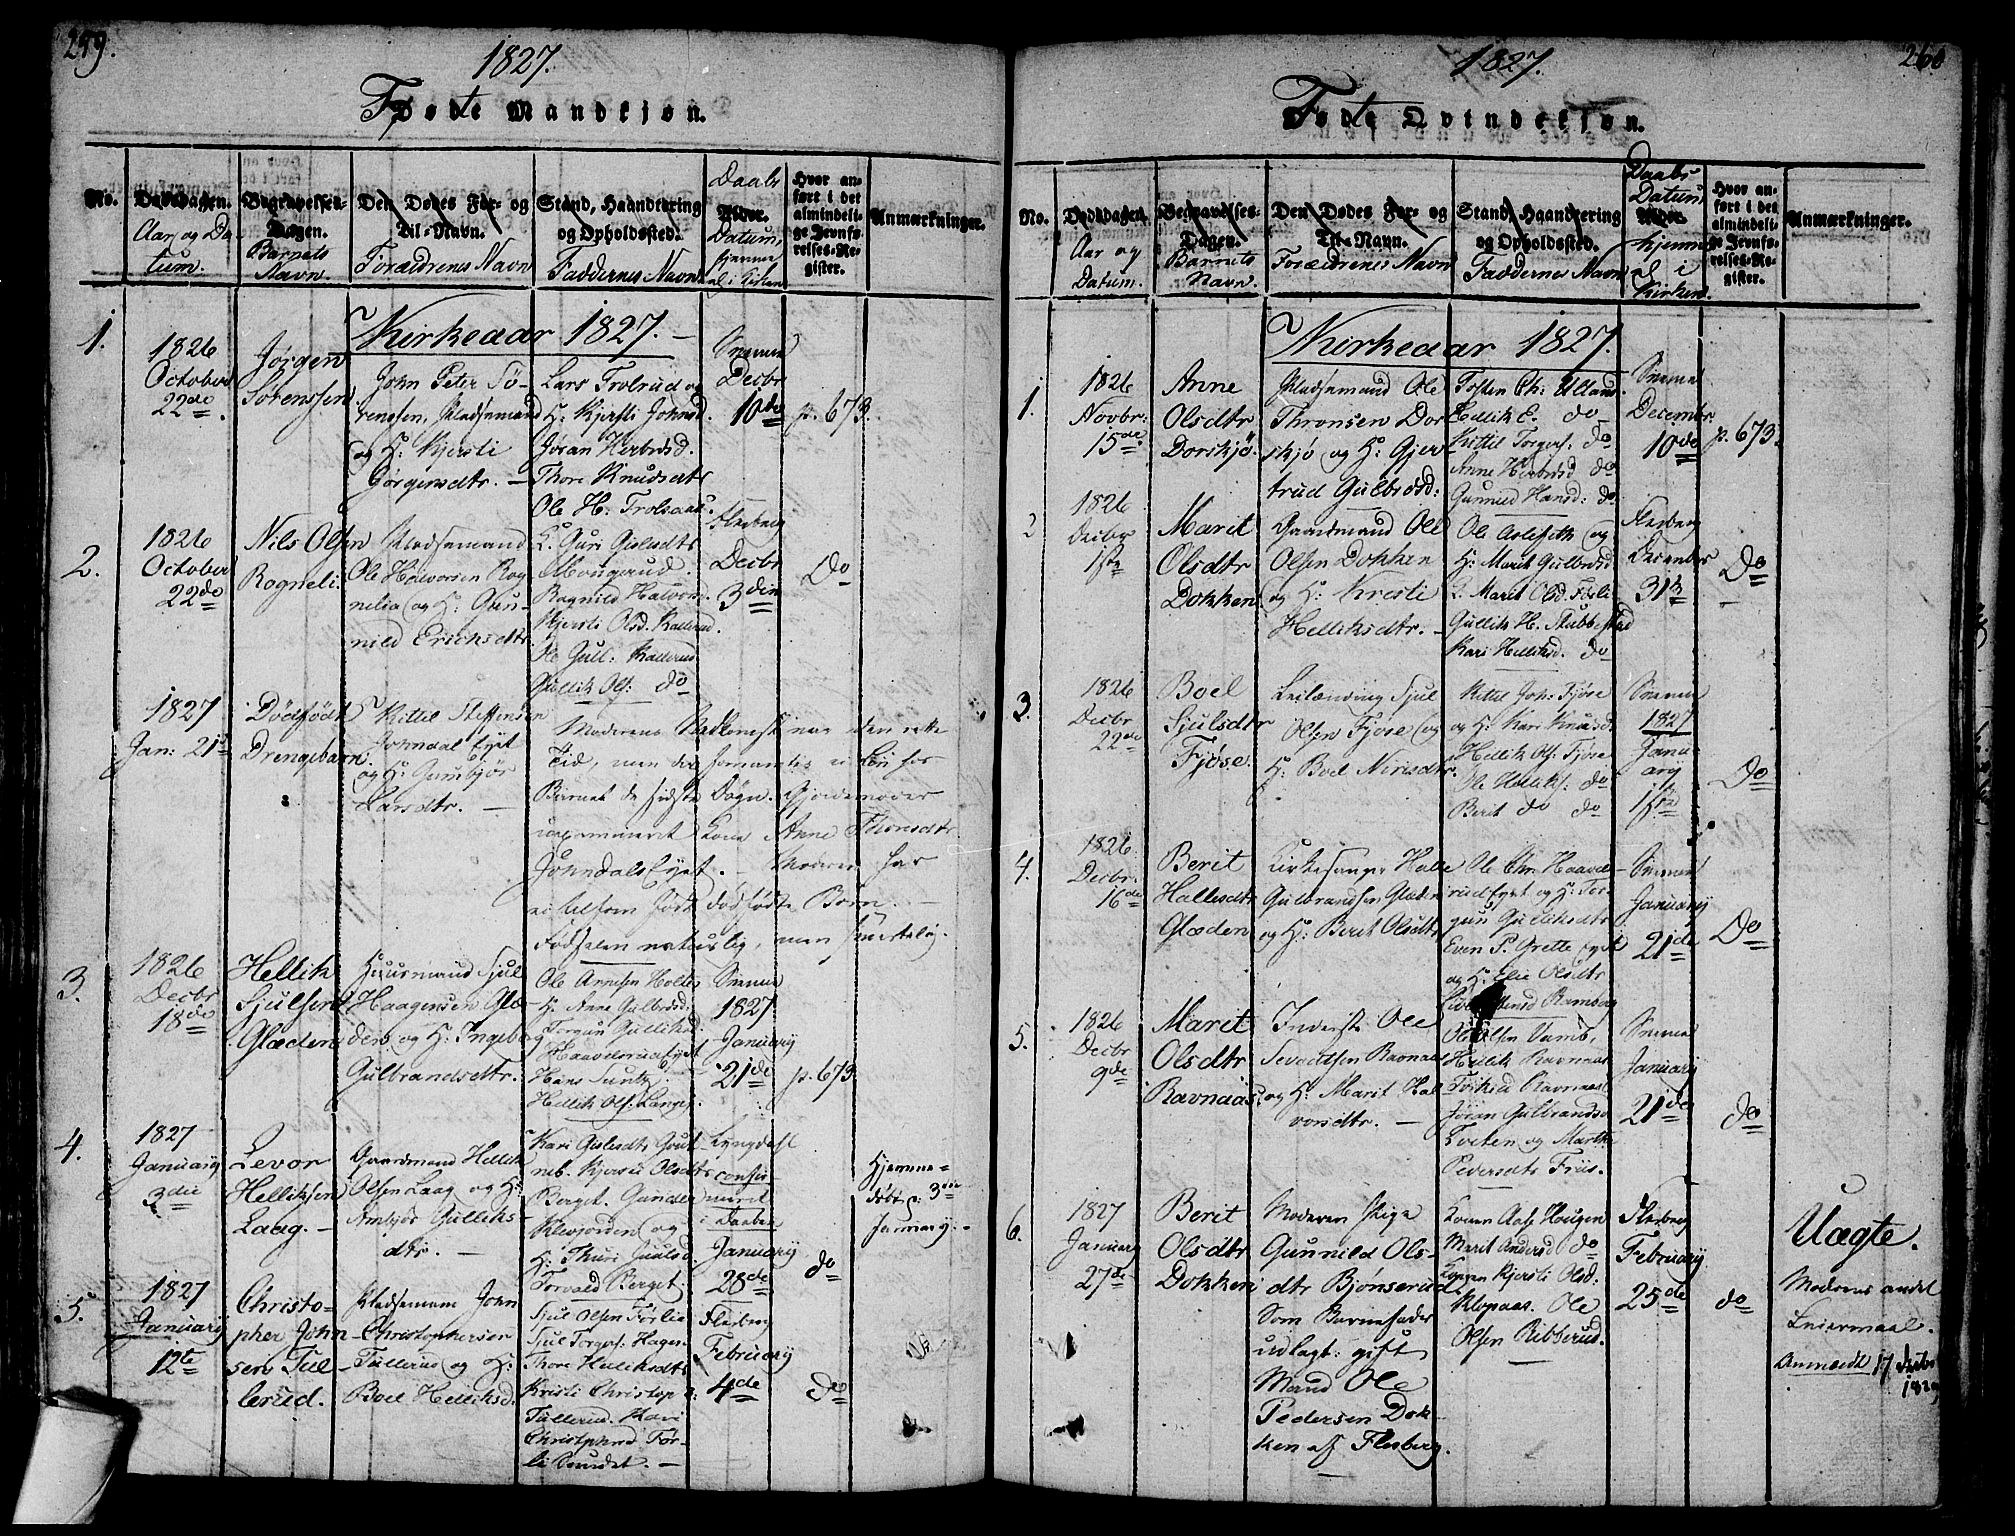 259.
1827.
Fødte Mandkjøn.
No.
Dødsdagen.
Aar og Da
tum.
Begravelses-
Dagen.
Barnets
Navn.
Den Dødes For- og
Til-Navn.
Forældrenes Navn
Stand, Haandtering
og Opholdssted.
Faddernes Navn
Daabs
Alder.
Datum,
hjemme
el. i Kirken
Hvor an-
ført i det
almindeli-
ge Jevnfø-
relses-Re-
gister.
Anmærkninger.
Kirkeaar 1827.
1.
1826
October
22de
Jørgen
Sørenssen
John Peter Sø-
renssen, Pladsemand
og H: Kjersti
Jørgensdtr.
Lars Trolrud og
H: Kjersti Johnsd.
Jøran Herbrsd.
Thore Knudsdtr
Ole H: Trolsaas.
Decbr
10de
p. 673.
2.
1826
October
22de
Nils Olsen
Rogneli
Pladsemand
Ole Halvorsen Rog
nelia og H: Gun-
nild Erichsdtr.
K. Guri Gislesdtr
Mougerud.
Ragnild Halvors.
Kjersti Olsd. Kallerud.
Ole Gull: Kallerud
Gullik Ols: do
Flesberg
Decbr
3die
Do
1827
Jan: 21
Dødfødt
Drengebarn.
Kittil Steffensen
Johndal Eyet
og H: Gunbjør
Larsdtr.
Moderens Nedkomst var den rette
Tid, men der formantes ei Liv hos
Barnet de sidste Døgn. Gjordemoder
uexamineret Kone Anne Thorsdtr
JohndalsEyet. Moderen har
ei tilforn født dødfødte Børn.
Fødselen naturlig, men
3.
1826
Decbr
18de
Hellik
Sjulsen
Glæden
Huusmand Sjul
Haagensen Glæ-
den og H: Ingeborg
Gulbrandsdtr.
Ole Arnesen Holtes
H: Anne Gulbrsd:
Torgun Gulliksd.
Haavelsrudeyet
Hans
Hellik Ols: Langes.
1827
January
21de
p. 673
4.
1827
January
3die
Levor
Helliksen
Laag.
Gaardmand Hellik
Olsen Laag og H:
Ambjør Gulliks-
dtr.
Kari Gislesdtr
Kjersti Olsdtr
Berget. Gunder
Klevjorden og
H: Thuri Juulsd.
Torvald Berget.
Lyngdahl
confir-
meret
i Daaben
January
28de
do
Hjemme-
døbt p: 3die
January.
5.
1827
January
12te
Christo-
pher John
sen Tul
lerud.
Pladsemand John
Christophersen
Tullerud og H:
Boel Helliksd.
Sjul Olsen Førlie
Sjul Torgers: Hagen
Thore Helliksdtr
Kristi Christoph
Tullerud. Kari
Christophersd Før-
li
Flesberg
February
4de
Do
260
1827.
Fødte Qvindekjøn.
No.
Dødsdagen.
Aar og
Datum.
Begravelses-
Dagen.
Barnets
Navn.
Den Dødes For- og
Til-Navn.
Forældrenes Navn
Stand, Haandtering
og Opholdssted.
Faddernes Navn
Daabs
Datum
Alder.
hjemme
el i
Kirken.
Hvor an-
ført i det
almindeli-
ge Jevnfø-
relses-Re-
gister.
Anmærkninger.
Kirkeaar 1827.
1.
1826
Novbr:
15de
Anne
Olsdtr
Dorskjø
Pladsemand Ole
Thronsen Dor
skjø og H: Gjer
trud Gulbrdsd:
Tosten Ch: Ulland
Hellik E. do
Kittil Torgers: do
Anne do
Gunnild Hansd: do
Decembr
10de
p. 673
2
1826
Decbr
1ste
Marit
Olsdtr
Dokken
Gaardmand Ole
Olsen Dokken
og H: Kristi
Helliksdtr.
Ole Aslefeth og
H: Marit Gulbrdsd
L. Marit Olsd. Førli
Gullik H. Stubberud
Kari Helliksd. do
Flesberg
December
31te
Do
3.
1826
Decbr
22de
Boel
Sjulsdtr
Fjøse.
Leilænding Sjul
Olsen Fjøse og
H: Boel Nirisdtr.
Kittil Joh: Fjøse
og H: Kari Knudsd.
Hellik Ols: Fjøse
Ole Helliks: do
Berit do do
1827
Janu-
ary
1ste
Do
4.
1826.
Decbr:
16de
Berit
Hallesdtr
Glæden
Kirkesanger Halle
Gulbrandsen Glæden
og H: Berit Olsdtr
Ole Chr. Haavels
rudeyet og H: Tor-
gun Gulliksdtr
Even P. Grette eyet
og H: Elie Olsdtr
Ramberg
January
21de
Do
5.
1826
Decbr
9de
Marit
Olsdtr
Ravnaas
Inderste Ole
Sevaldsen Ravnaas
og H: Marit Hal
vorsdtr.
Ole Olsen
Hellik Ravnaas
Torkild Ravnaas
Jøran Gulbrandsd
Tveten og Marthe
Pedersdtr Friis.
January
21de
do
6.
1827
January
27de
Berit
Olsdtr
Dokken
Moderen Pige
Gunnild Ols-
dtr Bjønserud
Som Barnefader
udlagt: gift
Mand Ole
Pedersen Dok-
ken af Flesberg.
Konen Aase Haugen
Marit Andersd do
Konen Kjersti Olsd.
Klopaas. Ole
Olsen Ribberud.
Flesberg
February
25de
do
Uægte.
Moderens andet
Leiermaal.
Anmeldt 17 Decbr
1829